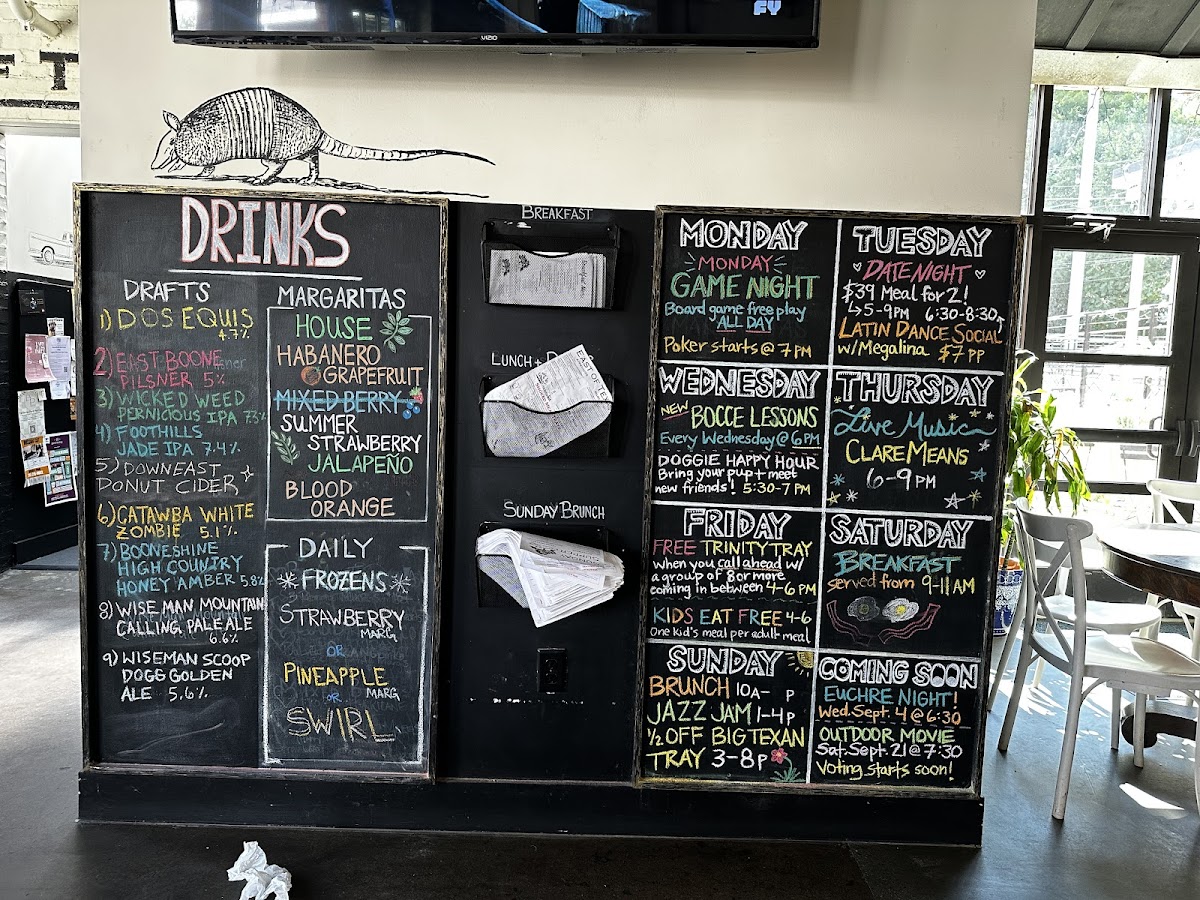 VIZIO
FY
F T
DRINKS
DRAFTS
1) DOS EQUIS
4.7%
2) EAST BOONE
PILSNER 5%
3) WICKED WEED
PERNICIOUS IPA 7.3%
4) FOOTHILLS
JADE IPA 7.4%
5) DOWNEAST
DONUT CIDER
6) CATAWBA WHITE
ZOMBIE 5.1%
7) BOONESHINE
HIGH COUNTRY
HONEY AMBER 5.8%
8) WISE MAN MOUNTAIN
CALLING PALE ALE
6.6%
9) WISEMAN SCOOP
DOGG GOLDEN
ALE 5.6%
MARGARITAS
HOUSE
HABANERO
GRAPEFRUIT
MIXED BERRY
SUMMER
STRAWBERRY
JALAPEÑO
BLOOD
ORANGE
DAILY
FROZENS
STRAWBERRY
MARG
OR
PINEAPPLE
MARG
OR
SWIRL
BREAKFAST
LUNCH +
EAST OF
SUNDAY BRUNCH
MONDAY
MONDAY
GAME NIGHT
Board game free play
ALL DAY
Poker starts @ 7 PM
TUESDAY
DATE NIGHT
$39 Meal for 2!
45-9PM 6:30-8:30
LATIN DANCE SOCIAL
w/Megalina $7 PP
WEDNESDAY
NEW BOCCE LESSONS
Every Wednesday @ 6 PM
DOGGIE HAPPY HOUR
Bring your pup + meet
new friends! 5:30-7 PM
THURSDAY
Live Music
CLARE MEANS
6-9 PM
FRIDAY
FREE TRINITY TRAY
when you call ahead w/
a group of 8 or more
coming in between 4-6 PM
KIDS EAT FREE 4-6
One kid's meal per adult meal
SATURDAY
BREAKFAST
served from 9-11 AM
SUNDAY
BRUNCH 10A- P
JAZZ JAM 1-4P
½ OFF BIG TEXAN
TRAY 3-8P
COMING SOON
EUCHRE NIGHT!
Wed. Sept. 4 @ 6:30
OUTDOOR MOVIE
Sat. Sept. 21 @ 7:30
Voting starts soon!